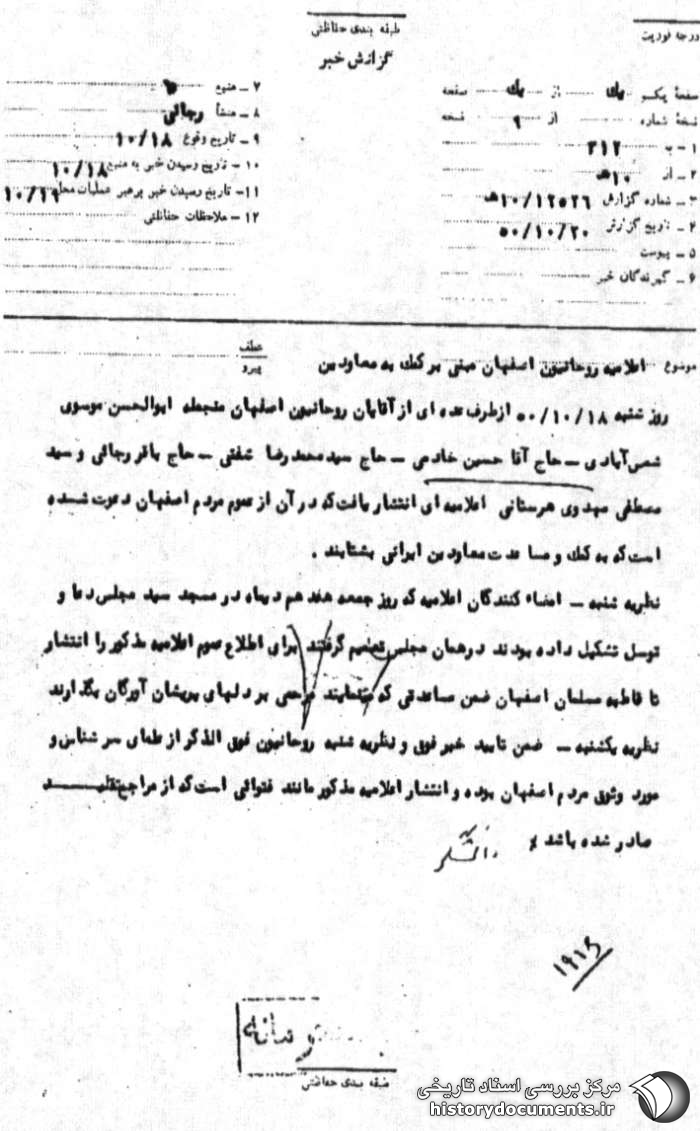 درجه فوریت
طبقه بندی حفاظتی
گزارش خبر
صفحهٔ یکم یک از یک صفحه
نسخهٔ شماره از ۹ نسخه
۱ – به ۳۱۲
۲ – از ۱۰ هـ
۳ – شماره گزارش ۱۰/۱۲۵۲۶ هـ
۴ – تاریخ گزارش ۵۰/۱۰/۲۰
۵ – پیوست
۶ – گیرندگان خبر
۷ – منبع
۸ – منشأ رجائی
۹ – تاریخ وقوع ۱۰/۱۸
۱۰ – تاریخ رسیدن خبر به منبع ۱۰/۱۸
۱۱ – تاریخ رسیدن خبر برهبر عملیات محل ۱۰/۱۹
۱۲ – ملاحظات حفاظتی
موضوع اعلامیه روحانیون اصفهان مبنی بر کمک به معاودین
عطف
پیرو
روز شنبه ۵۰/۱۰/۱۸ از طرف عده ای از آقایان روحانیون اصفهان منجمله ابوالحسن موسوی
شمس آبادی – حاج آقا حسین خادمی – حاج سید محمد رضا شفتی – حاج باقر رجائی و سید
مصطفی مهدوی هرستانی اعلامیه ای انتشار یافت که در آن از عموم مردم اصفهان دعوت شده
است که به کمک و مساعدت معاودین ایرانی بشتابند .
نظریه شنبه – امضاء کنندگان اعلامیه که روز جمعه هفدهم دیماه در مسجد سید مجلس دعا و
توسل تشکیل داده بودند در همان مجلس تصمیم گرفتند برای اطلاع عموم اعلامیه مذکور را انتشار
تا قاطبه مسلمان اصفهان ضمن مساعدتی که مینمایند مرحمی بر دلهای پریشان آورگان بگذارند
نظریه یکشنبه – ضمن تایید خبر فوق و نظریه شنبه روحانیون فوق الذکر از علمای سرشناس و
مورد وثوق مردم اصفهان بوده و انتشار اعلامیه مذکور مانند فتوائی است که از مراجع تقلید
صادر شده باشد
۱۹۱۴
طبقه بندی حفاظتی
مرکز بررسی اسناد تاریخی
historydocuments.ir